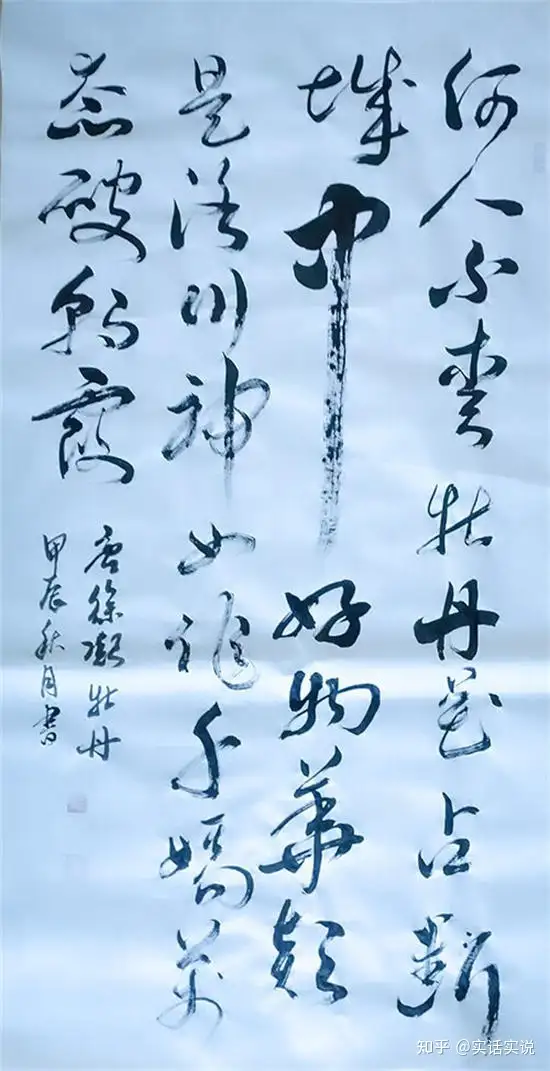 何人不愛牡丹花占斷
城中好物華疑
是洛川神女作千嬌萬
态破朝霞
唐徐凝牡丹
甲辰秋月書
知乎 @实话实说